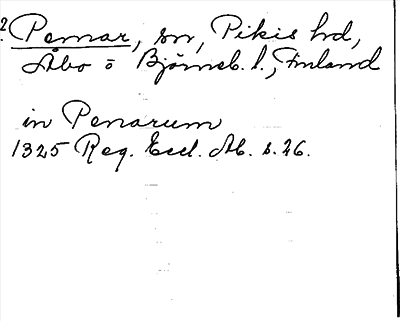 2. Pemar, sn, Pikis hd,
Åbo o Björneb. l., Finland
in Penarum
1325 Reg. Eccl. Ab. s. 26.